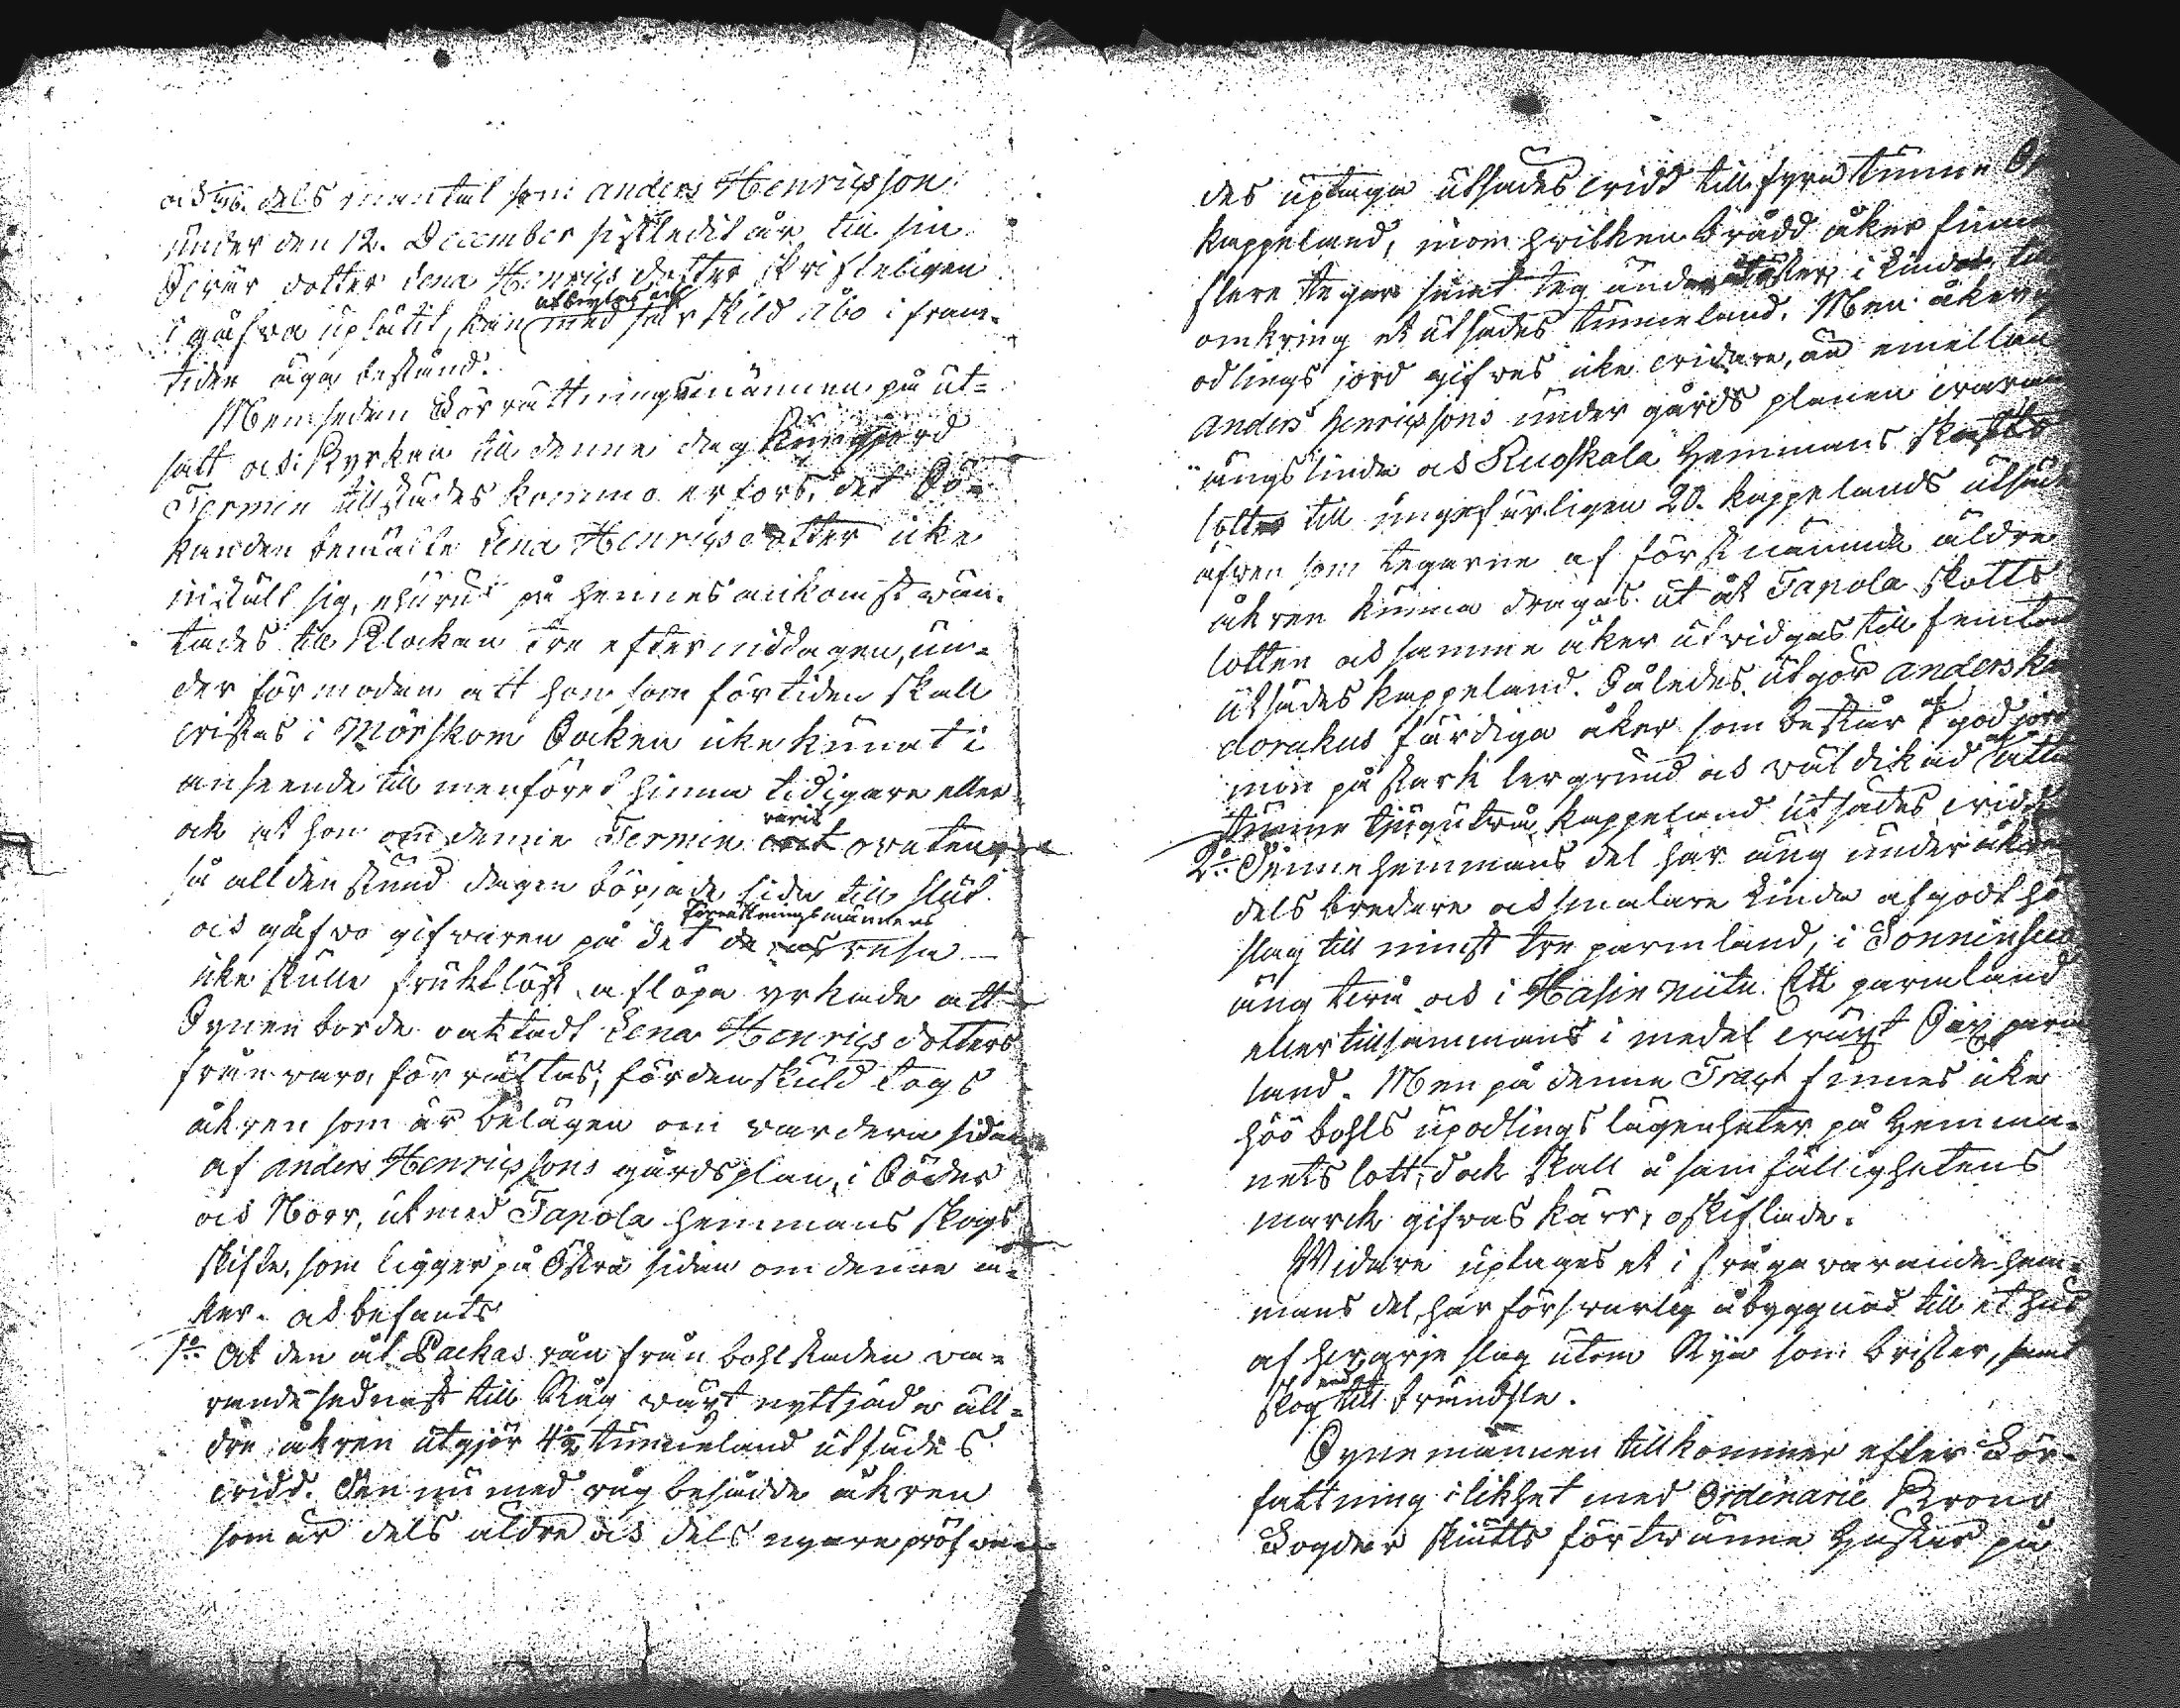 och 1/36. dels mantal som Anders Henricsson
under den 12. December sistledit år till sin
Broders dotter Lena Henrics dotter skrifteligen
i gåfva uplåtit, kan utbrytas och med särskild åbo i fram-
tiden äga bestånd.
Men sedan Förrättningsmännen på ut-
satt och i Kyrkan till denna dag kungjord
Termin tillstädes kommo erfors, det Sö-
kanden bemälte Lena Henricsdotter icke
instält sig, ehuru på hennes ankomst vän-
tades till Klockan Tre eftermiddagen, un-
der förmodan att hon som för tiden skall
vistas i Mörskom Socken icke kunnat i
anseende till menföret hinna tidigare eller
ock at hon om denna Termin varit ovetan,
så alldenstund dagen började lida till slut
och gåfvo gifvaren på det förrättningsmännens resa
icke skulle fruktlöst aflöpa yrkade att
Synen borde oaktadt Lena Henrics dotters
frånvaro, förrättas, fördenskuld togs
åkren som är belägen om vardera sidan
af Anders Henricssons gårdsplan, i Söder
och Norr, utmed Tapola hemmans skogs
skifte, som ligger på Östra sidan om denna å-
ker. och befants
1:o At den åt Packas rån från bohlstaden va-
rande sednast till Råg växt nyttjade äll-
dre åkren utgjör 4 1/2 tunneland utsädes
vidd. Den nu med råg besådde åkren
som är dels äldre och dels nyare pröfvan-
des uptaga utsädes vidd till fyra tunne
kappeland, inom hvilken brådd åker finnas
flere tegar samt teg under i Linda till
omkring et utsädes tunneland. Men åker
odlings jord gifves icke vidare, än emellan
Anders Henricssons under gårds planen varande
ängs linda och Ruoskala Hemmans skogs
lotter till ungefärligen 20. kappelands utsäde
äfven som tegarne af förstnämnde äldre
åkren kunna dragas ut åt Tapola skotts
lotten och samma åker utvidgas till femton
utsädes kappeland. Således utgör Anders
färdiga åker som består af god jord
mon på stark lergrund och väl dikad åtta
tunne tjugutvå kappeland utsädes vidd
2:o Denne hemmans del har äng under åkren
dels bredare och smalare Linda af godt hö
slag till minst tre parmland, i Sonninsuo
äng två och i Hasin niitu Ett parmland
eller tillsammans i medel växt Sex parm
land. Men på denna Tragt finnes icke
höö bohls upodlings lägenheter på Hemma-
nets lott, dock skall å samfälligheten
marck gifvas kärr, oskiftade.
Vidare uptages at i fråga varande hem-
mans del har försvarlig åbyggnad till et hus
af hvarje slag utom Rya som brister, samt
skog till bränsle.
Synemännen tillkommer efter För-
fattning i likhet med Ordinarie Krono
Fogdar skjuts för tvänne Hästar på